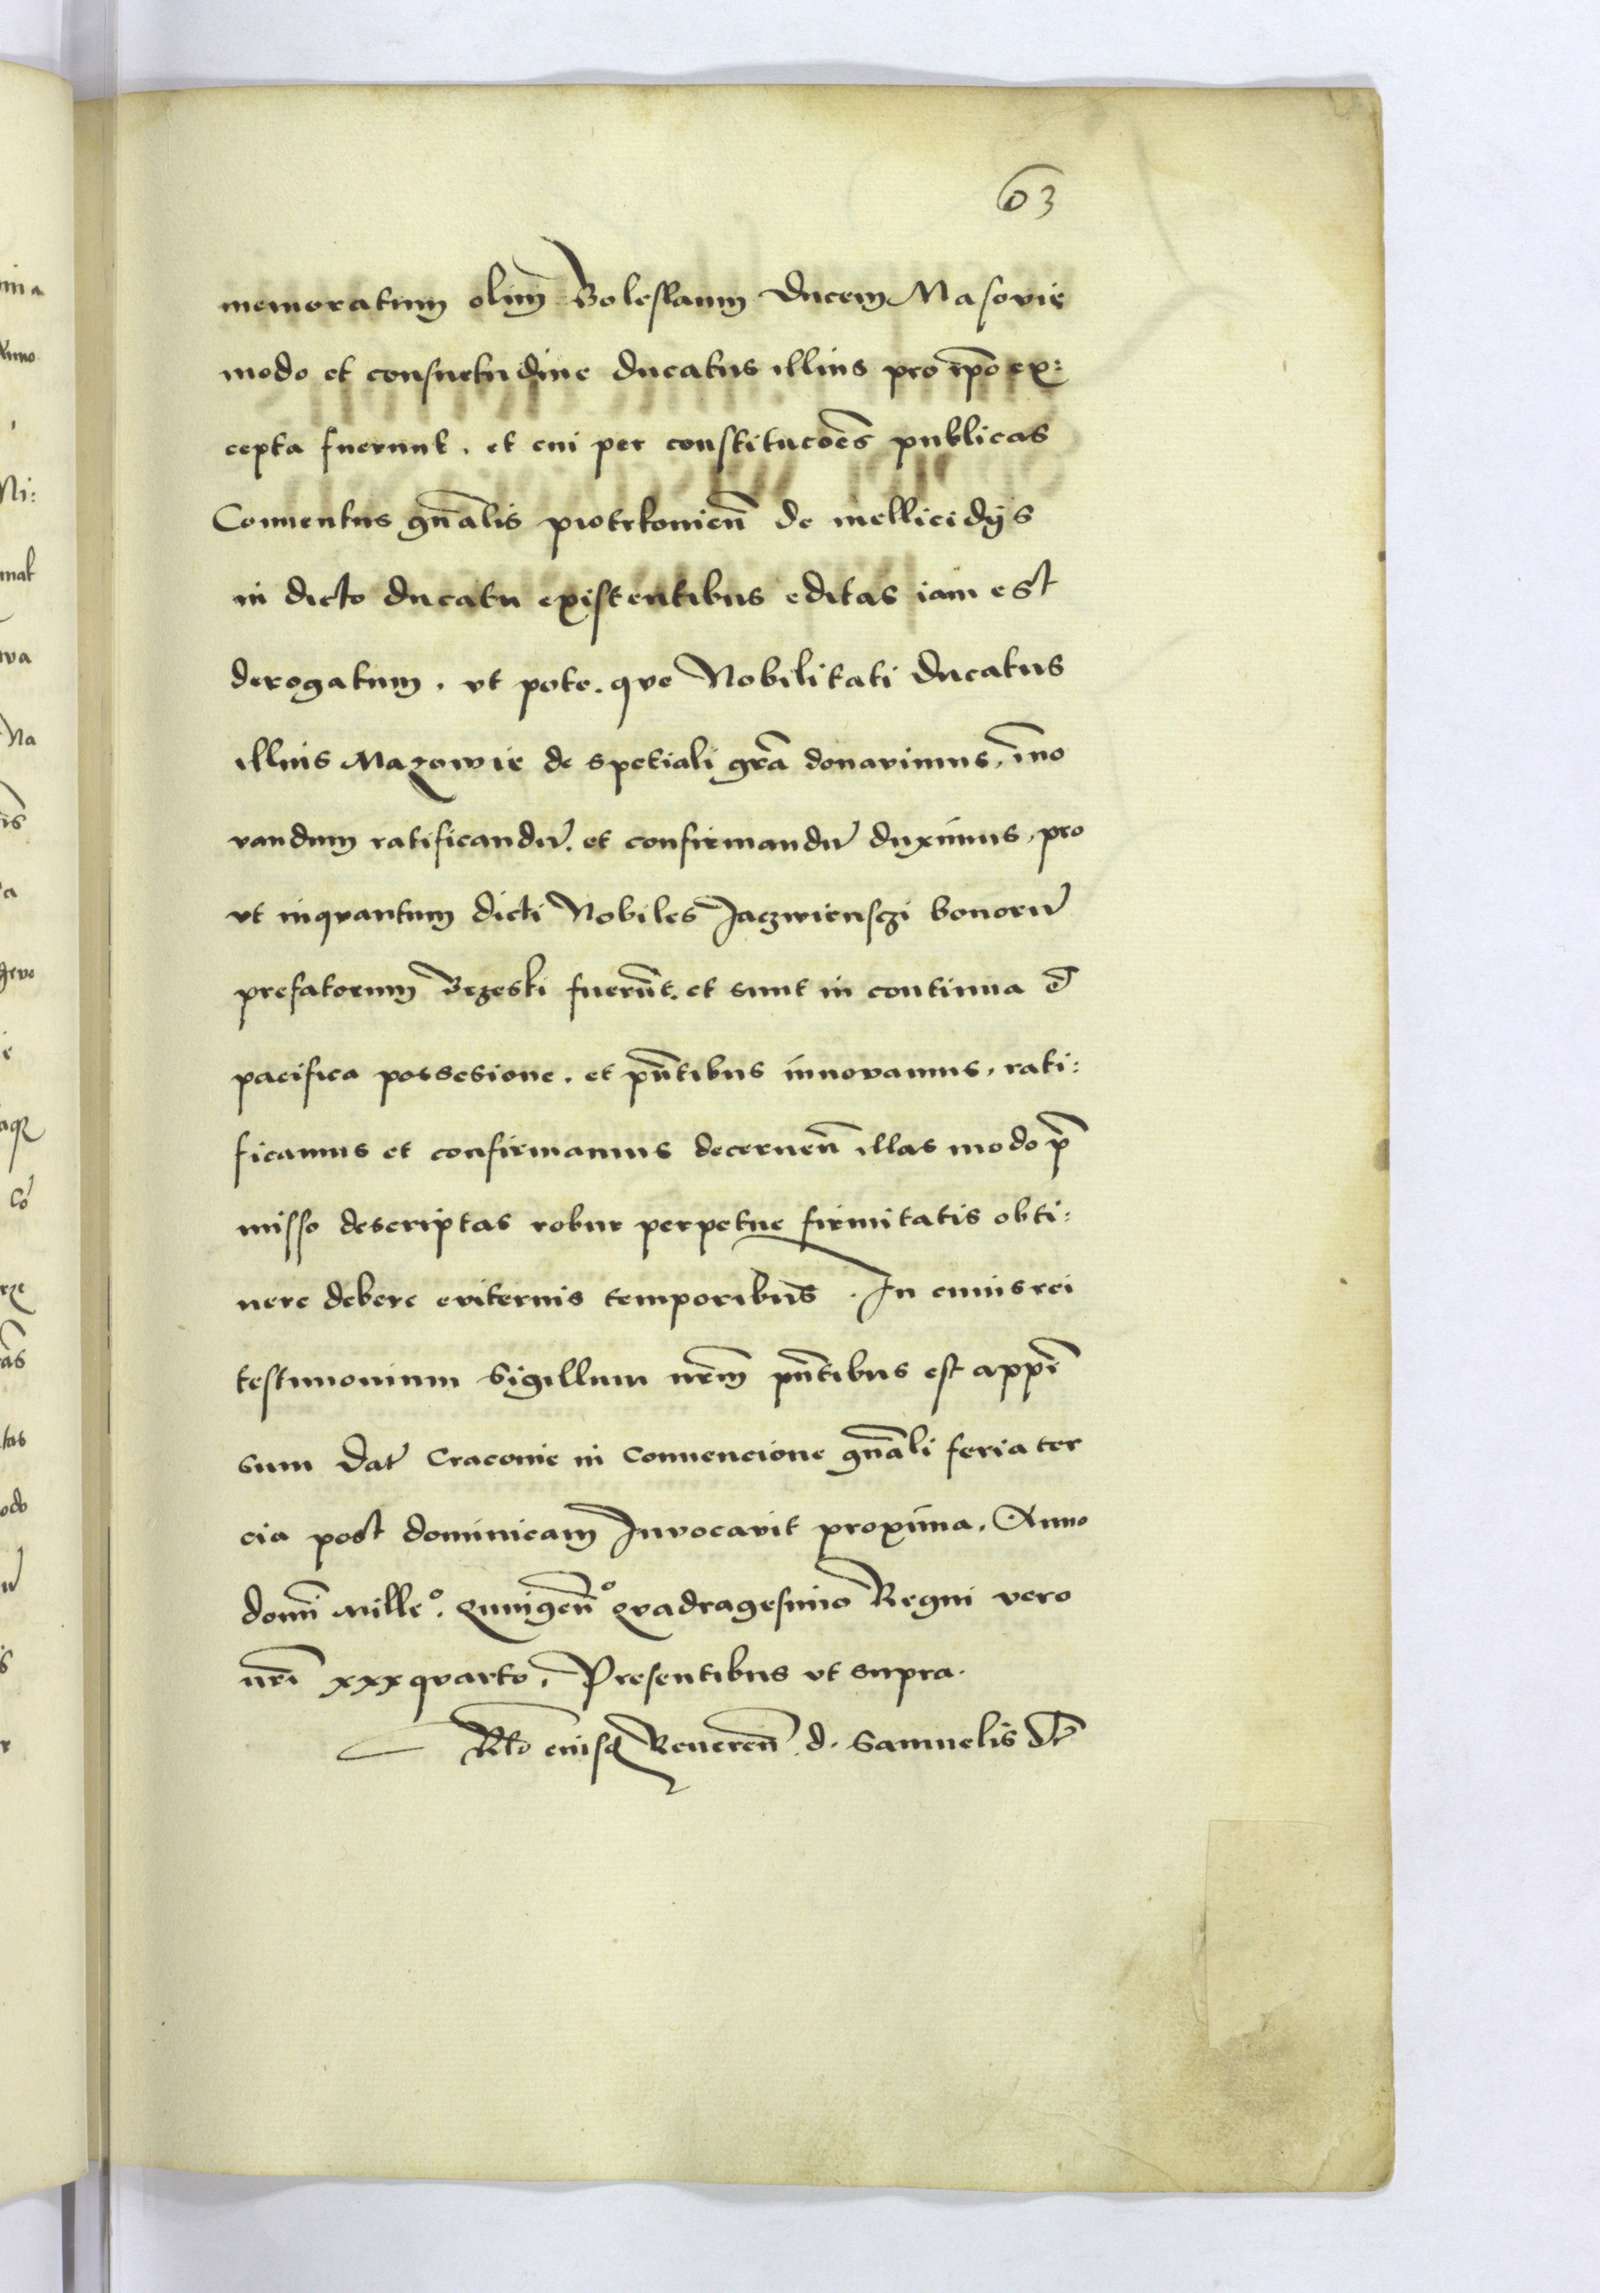 63
memoratum olim Boleslaum Ducem Masovie
modo et consuetudine ducatus illius pro ip̄o ex:
cepta fuerunt. et cui per constitucōes publicas
Conuentus gn̄alis piotrkouien̄ de mellicidijs
in dicto ducatu existentibus editas iam est
derogatum. vt pote. que Nobilitati ducatus
illius Mazowie de speciali grā donavimus, īno
vandum ratificandū. et confirmandū duximus, pro
vt inquantum dicti Nobiles Jaczwienszi bonorū
prefatorum Brzeski fuerūt. et sunt in continua et
pacifica possesione. et pn̄tibus innovamus, rati:
ficamus et confirmamus decernen̄ illas modo p̄
misso descriptas robur perpetue firmitatis obti:
nere debere eviternis temporibus. In cuius rei
testimonium Sigillum nrm̄ pn̄tibus est appē
sum Dat̄ Craconie in Conuencione gn̄ali feria ter
cia post dominicam Invocavit proxima. Anno
domī Mille°. Quingen̄° Quadragesimo Regni vero
nrī xxx quarto, Presentibus vt supra.
Rlō eiusq̄ Reueren̄ d. Samuelis etc̄